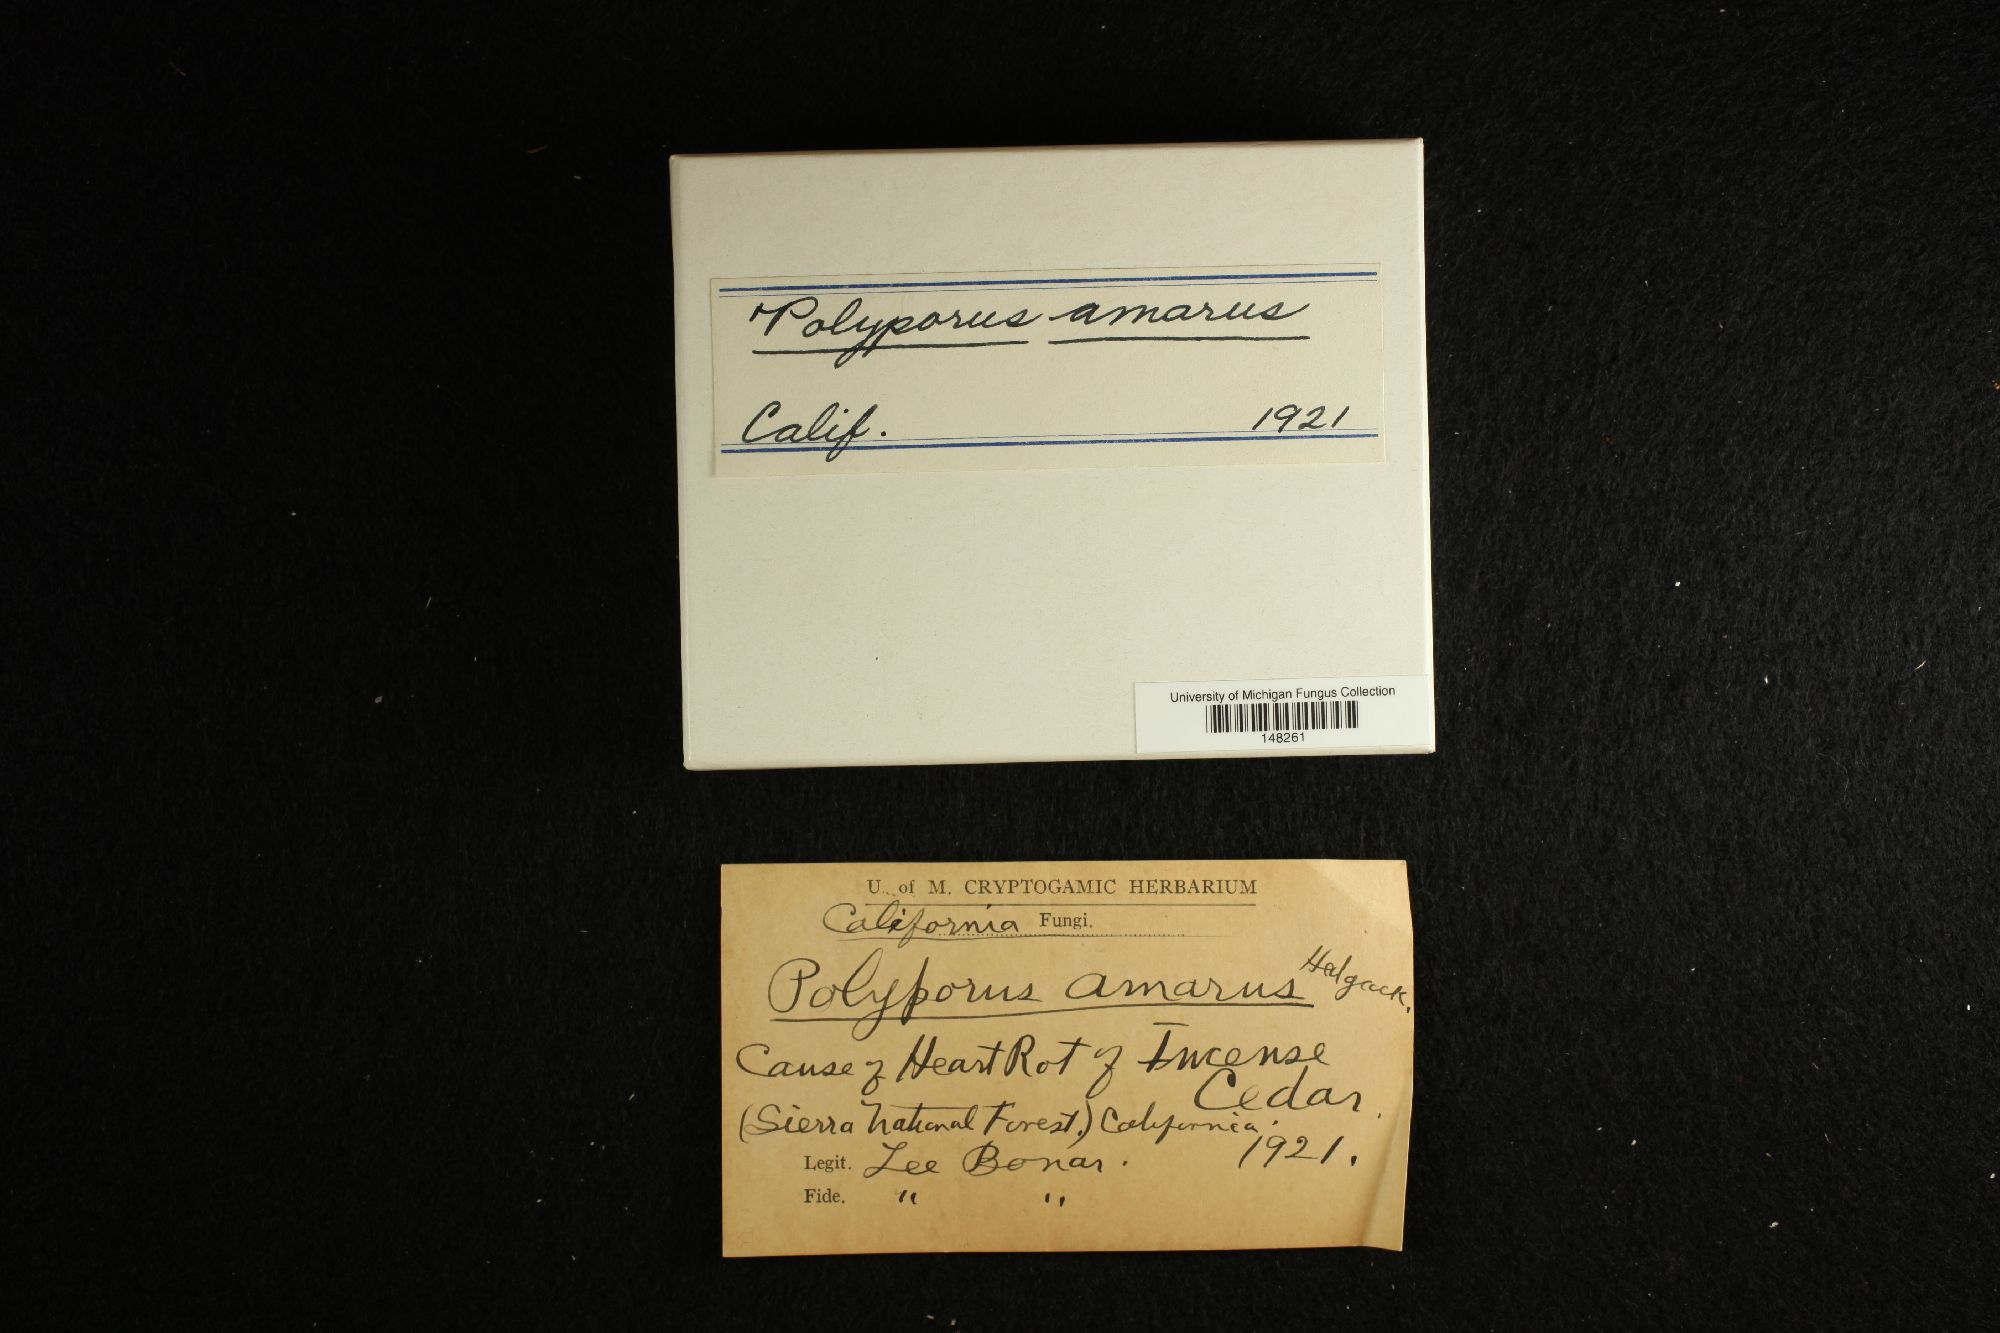 Polyporus amarus
Calif. 1921
University of Michigan Fungus Collection
148261
U. of M. CRYPTOGAMIC HERBARIUM
California Fungi.
Polyporus amarus Hedgcock.
Cause of Heart Rot of Incense
Cedar.
(Sierra National Forest,) California.
1921.
Legit. Lee Bonar.
Fide. " "